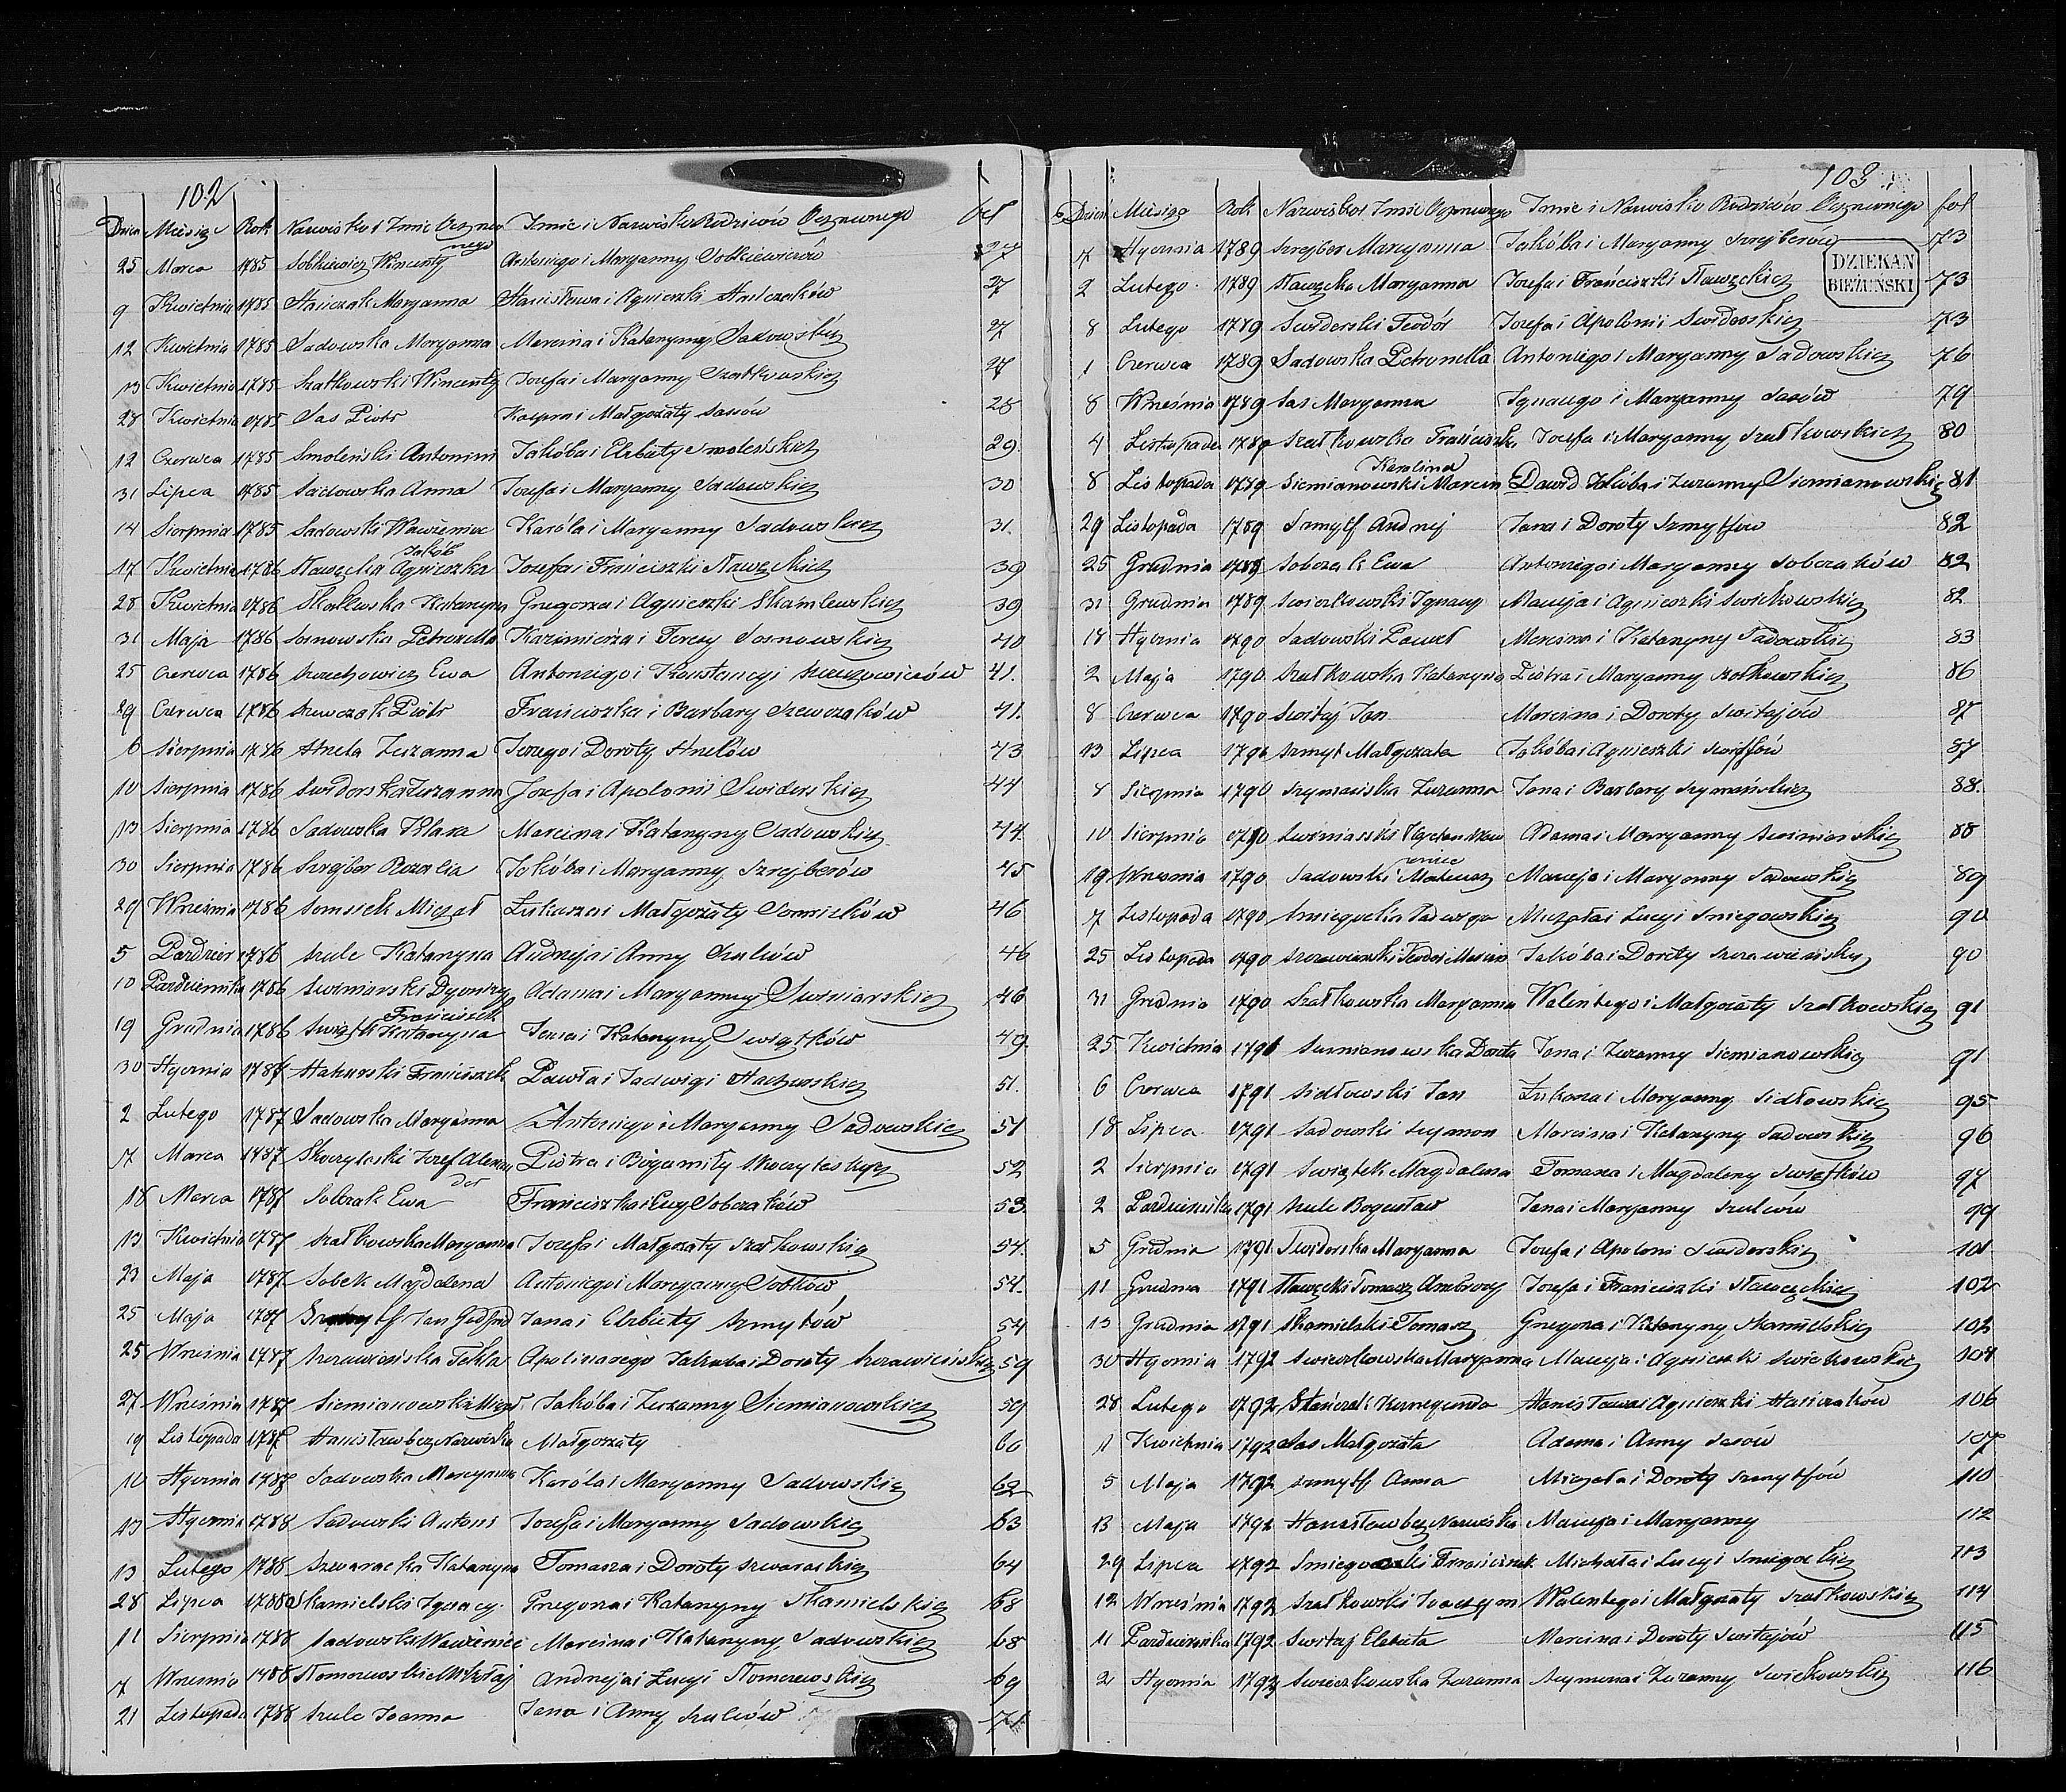 102
Dzień Miesiąc Rok Nazwisko i Imie Ochrzczo Imie i Nazwisko Rodziców fol
nego
25 Marca 1785 Sobkiewicz Wincenty Antoniego i Maryanny Sobkiewiczów 27
9 Kwietnia 1785 Stańczak Maryanna Stanisława i Agnieszki Stańczaków 27
12 Kwietnia 1785 Sadowska Maryanna Marcina i Katarzyny Sadowskich 27
13 Kwietnia 1785 Szatkowski Wincenty Jozefa i Maryanny Szatkowskich 27
28 Kwietnia 1785 Sas Piotr Kaspra i Małgorzaty Sasów 28
12 Czerwca 1785 Smoleński Antonini Jakóba i Elzbiety Smoleńskich 29.
31 Lipca 1785 Sadowska Anna Jozefa i Maryanny Sadowskich 30
14 Sierpnia 1785 Sadowski Wawrzeniec Karóla i Maryanny Sadowskich 31.
Jakób
17 Kwietnia 1786 Sławęcka Agnieszka Jozefa i Franciszki Sławęckich 39
28 Kwietnia 1786 Katarzyna Gregorza i Agnieszki Skamlewskich 39
31 Maja 1786 Sosnowska Petronella Kazimierza i Teresy Sosnowskich 40
25 Czerwca 1786 Szuchowicz Ewa Antoniego i Konstancyi 41.
29 Czerwca 1786 Szewczak Piotr Franciszka i Barbary Szewczaków 41.
6 Sierpnia 1786 Zuzanna i Doroty 43
10 Sierpnia 1786 Swiderska Zuzanna Jozefa i Apolonii Swiderskich 44
13 Sierpnia 1786 Sadowska Klara Marcina i Katarzyny Sadowskich 44.
30 Sierpnia 1786 Szrejber Rozalia Jakóba i Maryanny Szrejberów 45
29 Wrześnią 1786 Somsiek Michał Łukasza i Małgorzaty Somsieków 46
5 Pazdzier 1786 Szulc Katarzyna Andrzeja i Anny Szulców 46
10 Pazdziernika 1786 Swiniarski Dyonizy Adama i Maryanny Swiniarskich 46
Franciszek
19 Grudnia 1786 Swiątek Katarzyna Jana i Katarzyny Swiątków 49.
30 Stycznia 1787 Stachurski Franciszek Pawła i Jadwigi Stachurskich 51.
2 Lutego 1787 Sadowska Maryanna Antoniego i Maryanny Sadowskich 51
17 Marca 1787 Skoczylaski Jozef Alexan Piotra i Bogumiły Skoczylaskich 52
der
18 Marca 1787 Sobczak Ewa Franciszka i Ewy Sobczaków 53
13 Kwietnia 1787 Szatkowska Maryanna Jozefa i Małgorzaty Szatkowskich 54.
23 Maja 1787 Sobek Magdalena Antoniego i Maryanny Sobków 54.
25 Maja 1787 Jan Godfrid Jana i Elzbiety Szmytów 54
25 Wrześnią 1787 Szczawińska Tekla Apolinarego Jakuba i Doroty Szczawińskich 59
27 Wrześnią 1787 Siemianowski Michał Jakóba i Zuzanny Siemianowskich 59
19 Listopada 1787 Stanisław bez Nazwiska Małgorzaty 60
10 Stycznia 1788 Sadowska Maryanna Karóla i Maryanny Sadowskich 62
13 Stycznia 1788 Sadowski Antoni Jozefa i Maryanny Sadowskich 63
13 Lutego 1788 Szwaracka Katarzyna Tomasza i Doroty Szwarackich 64
28 Lipca 1788 Skamielski Ignacy. Gregorza i Katarzyny Skamielskich 68
11 Sierpnia 1788 Sadowski Wawrzeniec Marcina i Katarzyny Sadowskich 68
17 Wrześnią 1788 Słomczewski Mikołaj Andrzeja i Łucyi Słomczewskich 69
21 Listopada 1788 Szulc Joanna Jana i Anny Szulców 71.
103
Dzień Miesiąc Rok Nazwisko i Imie Ochrzczonego Imie i Nazwisko Rodziców Ochrzczonego fol
17 Stycznia 1789 Szrejber Maryanna Jakóba i Maryanny Szrejberów 73
DZIEKAN
BIEŻUŃSKI
2 Lutego 1789 Sławęcka Maryanna Jozefa i Franciszki Sławęckich 73
8 Lutego 1789 Swiderski Teodór Jozefa i Apolonii Swiderskich 73
1 Czerwca 1789 Sadowska Petronella Antoniego i Maryanny Sadowskich 76
8 Wrześnią 1789 Sas Maryanna Ignacego i Maryanny Sasów 79
4 Listopada 1789 Szatkowska Franciszka Jozefa i Maryanny Szatkowskich 80
Karolina
8 Listopada 1789 Siemianowski Marcin Dawid Jakóba i Zuzanny Siemianowskich 81
29 Listopada 1789 Szmytf Andrzej Jana i Doroty Szmytfów 82
25 Grudnia 1789 Sobczak Ewa Antoniego i Maryanny Sobczaków 82
31 Grudnia 1789 Swieczkowski Ignacy Macieja i Agnieszki Swieczkowskich 82
18 Stycznia 1790 Sadowski Paweł Marcina i Katarzyny Sadowskich 83
2 Maja 1790 Szatkowska Katarzyna Piotra i Maryanny Szatkowskich 86
8 Czerwca 1790 Switaj Jan Marcina i Doroty Switajów 87
13 Lipca 1790 Szmyt Małgorzata Jakóba i Agnieszki 87
8 Sierpnia 1790 Szymańska Zuzanna Jana i Barbary Szymańskich 88.
10 Sierpnia 1790 Swiniarski Kajetan Waw Adama i Maryanny Swiniarskich 88
19 Wrzesnia 1790 Sadowski Mateusz Macieja i Maryanny Sadowskich 89
7 Listopada 1790 Smiegocka Jadwiga Michała i Łucyi Smiegowskich 90
25 Listopada 1790 Szczawiński Teodor Marcin Jakóba i Doroty Szczawińskich 90
31 Grudnia 1790 Szatkowska Maryanna Walentego i Małgorzaty Szatkowskich 91
25 Kwietnia 1791 Siemianowska Dorota Jana i Zuzanny Siemianowskich 91
6 Czerwca 1791 Sidłowski Jan Łukasza i Maryanny Sidłowskich 95
18 Lipca 1791 Sadowski Szymon Marcina i Katarzyny Sadowskich 96
2 Sierpnia 1791 Swiątek Magdalena Tomasza i Magdaleny Swiątków 97
2 Pazdziernika 1791 Szulc Bogusław Jana i Maryanny Szulców 99
5 Grudnia 1791 Swiderska Maryanna Jozefa i Apoloni Swiderskich 101
11 Grudnia 1791 Sławęcki Tomasz Ambrozy Jozefa i Franciszki Sławęckich 102
13 Grudnia 1791 Skamielski Tomasz Gregorza i Katarzyny Skamielskich 102
30 Stycznia 1792 Swieczkowska Maryanna Macieja i Agnieszki Swieckowskich 104
28 Lutego 1792 Stańczak Kunegunda Stanisława i Agnieszki Stańczaków 106
11 Kwietnia 1792 Sas Małgorzata Adama i Anny Sasów 107
5 Maja 1792 Szmytf Anna Michała i Doroty Szmytfów 110
13 Maja 1792 Stanisław bez Nazwiska Macieja i Maryanny 112
29 Lipca 1792 Franciszek Michała i Lucyi Smiegockich 113
12 Wrześnią 1792 Szatkowski Joachym Walentego i Małgorzaty Szatkowskich 114
11 Pazdziernika 1792 Switaj Elzbieta Marcina i Doroty Switajów 115
2 Stycznia 1793 Swieczkowska Zuzanna Szymona i Zuzanny Swieckowskich 116